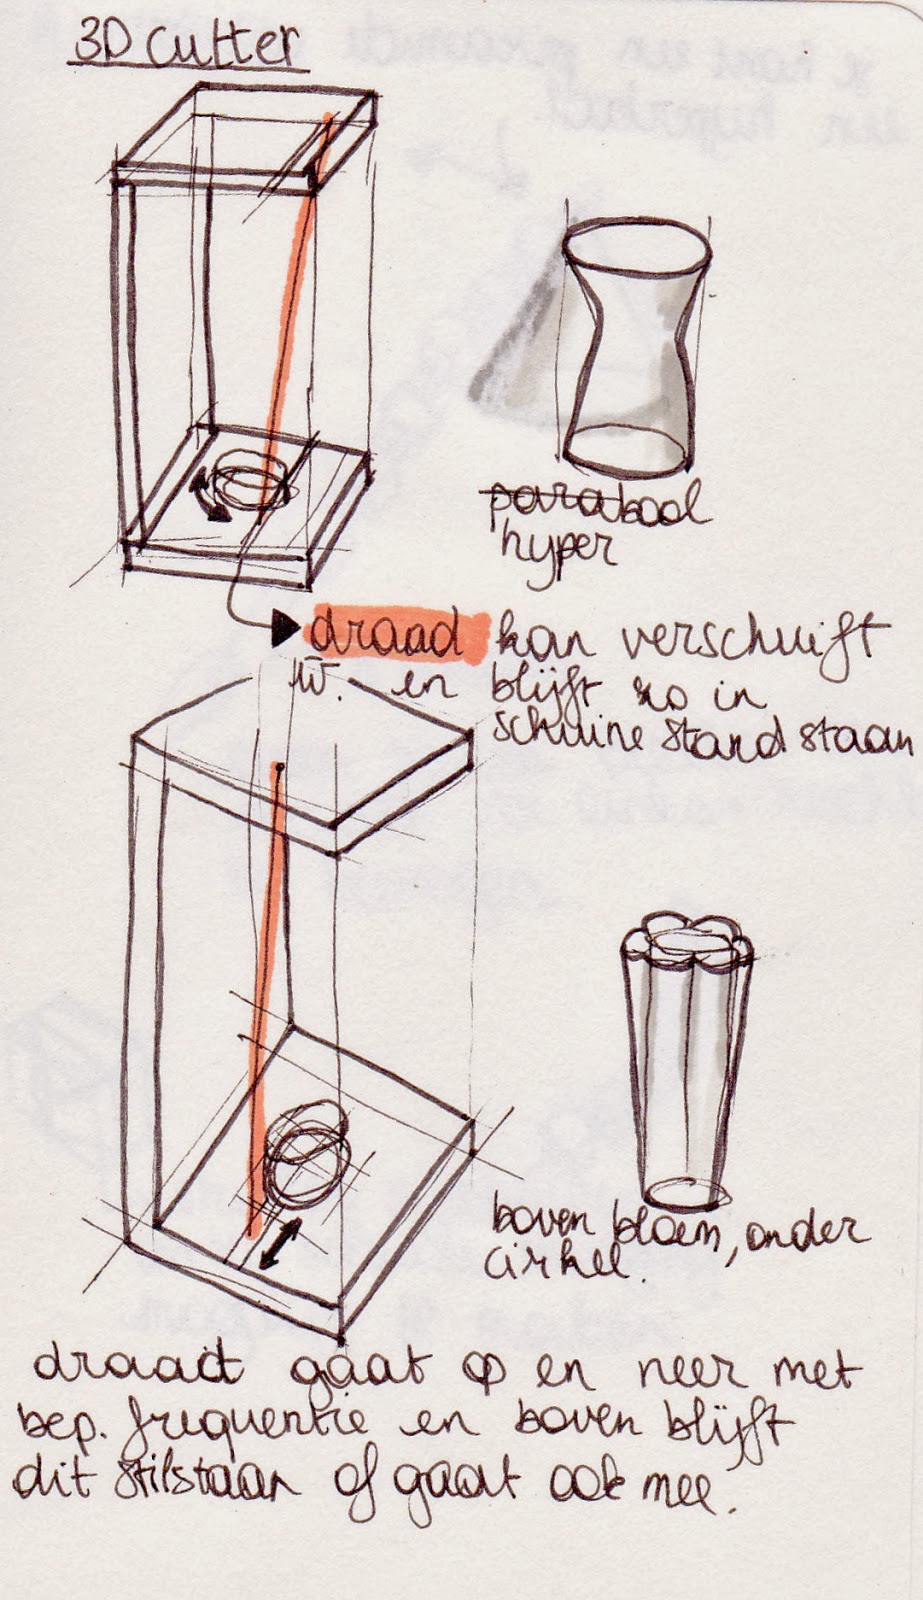 3D cutter
parabool
hyper
draad kan verschuift
w. en blijft zo in
schuine stand staan
boven bloem, onder
cirkel.
draad gaat op en neer met
bep. frequentie en boven blijft
dit stilstaan of gaat ook mee.